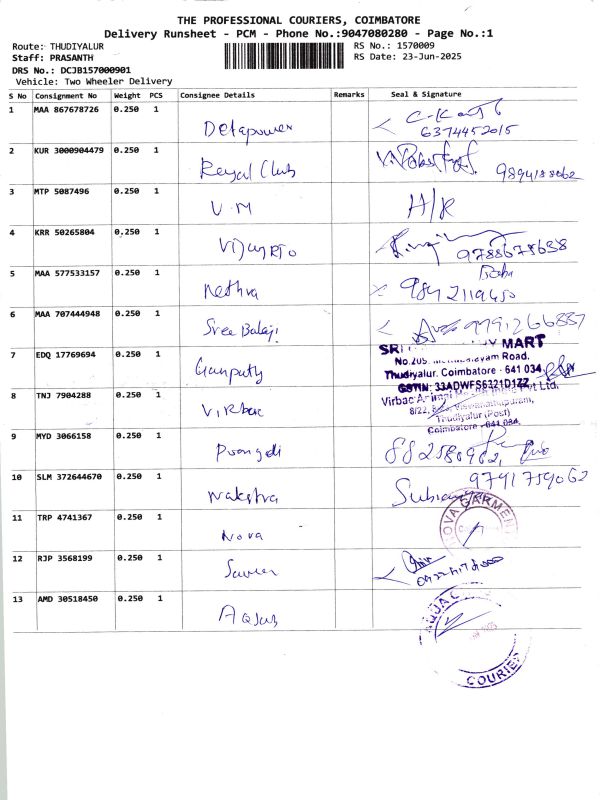 THE PROFESSIONAL COURIERS, COIMBATORE
Delivery Runsheet - PCM - Phone No.:9047080280 - Page No.:1
Route: THUDIYALUR RS No.: 1570009
Staff: PRASANTH RS Date: 23-Jun-2025
DRS No.: DCJB157000901
Vehicle: Two Wheeler Delivery
S No Consignment No Weight PCS Consignee Details Remarks Seal & Signature
1 MAA 867678726 0.250 1 Detapower
6374452015
2 KUR 3000904479 0.250 1 Royal Club 9894188062
3 MTP 5087496 0.250 1 V.M H/R
4 KRR 50265804 0.250 1 9788678638
5 MAA 577533157 0.250 1 Nethra Babu
9842119450
6 MAA 707444948 0.250 1 Sree Balaji 9791266837
7 EDQ 17769694 0.250 1 Ganputy MART
Thudiyalur. Coimbatore - 641 034
GSTIN: 33ADWFS6321D1ZZ
8 TNJ 7904288 0.250 1 Virbac Virbac Pvt Ltd.
8/22, Viswanathapuram,
Thudiyalur (Post)
Coimbatore - 641 034.
9 MYD 3066158 0.250 1 882586962
10 SLM 372644670 0.250 1 9791759062
11 TRP 4741367 0.250 1 Nova NOVA GARMEN
12 RJP 3568199 0.250 1
13 AMD 30518450 0.250 1 COURIER